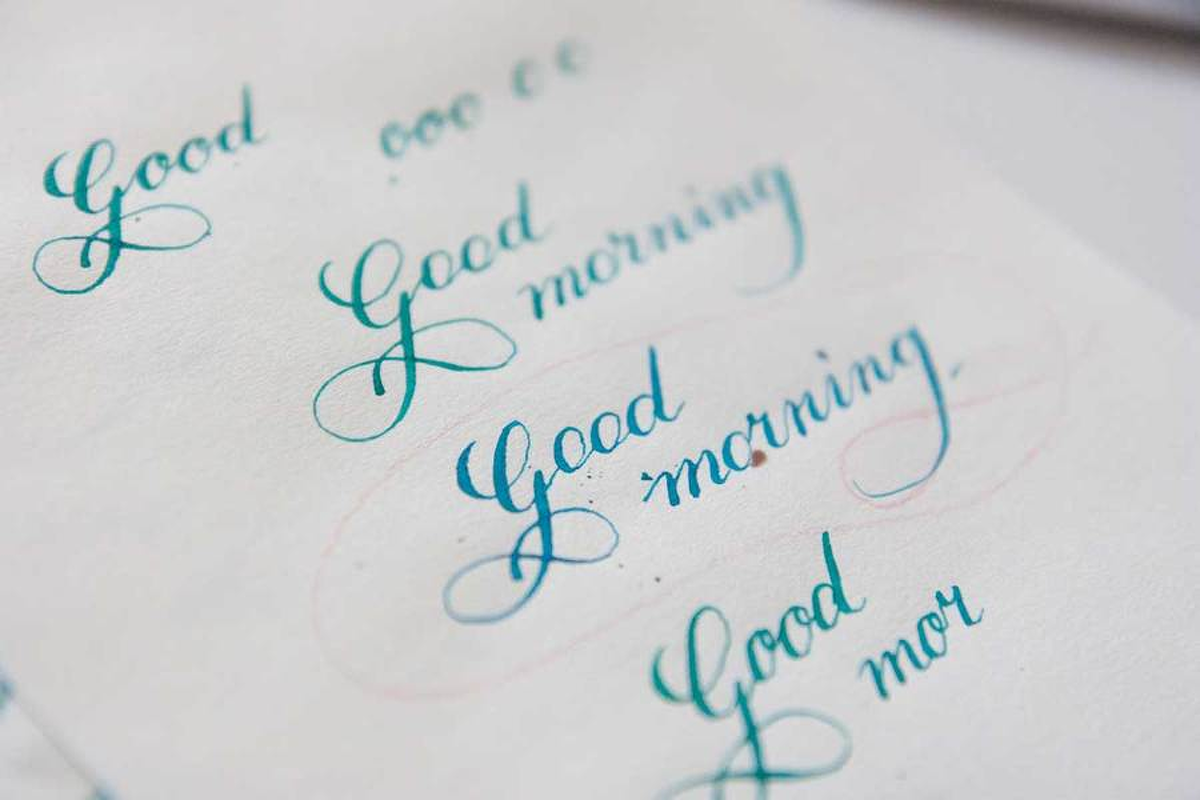 Good ooo o o
Good
morning
Good
morning.
Good
mor